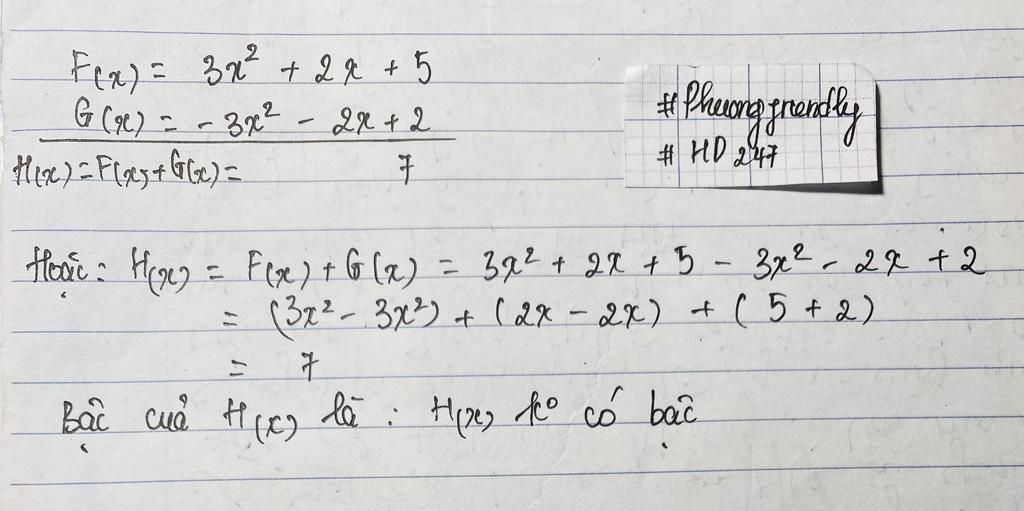 F(x) = 3x² + 2x + 5
G(x) = -3x² - 2x + 2
H(x) = F(x) + G(x) = 7
# Phuong friendly
# HD 247
Hoặc: H(x) = F(x) + G(x) = 3x² + 2x + 5 - 3x² - 2x + 2
= (3x² - 3x²) + (2x - 2x) + (5 + 2)
= 7
Bậc của H(x) là : H(x) k° có bậc